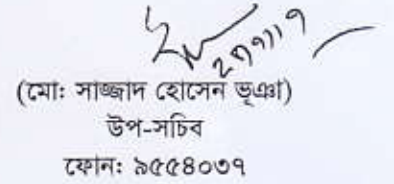 (মোঃ সাজ্জাদ হোসেন ভূঞা)
উপ-সচিব
ফোনঃ ৯৫৫৪০৩৭